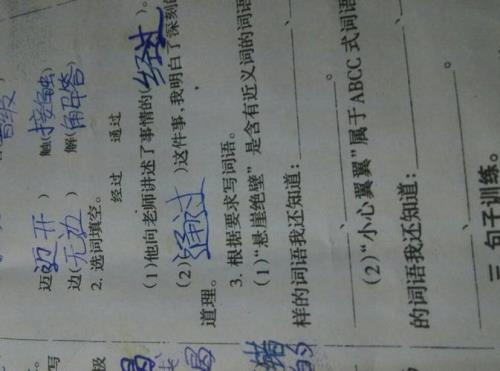 迈(迈开) 触(接触)
边(无边) 解(解答)
2. 选词填空。
经过 通过
(1)他向老师讲述了事情的(经过)。
(2)(通过)这件事,我明白了深刻的
道理。
3. 根据要求写词语。
(1)“悬崖绝壁”是含有近义词的词语
样的词语我还知道:________、________、________。
(2)“小心翼翼”属于ABCC式词语
的词语我还知道:________、________。
三、句子训练。